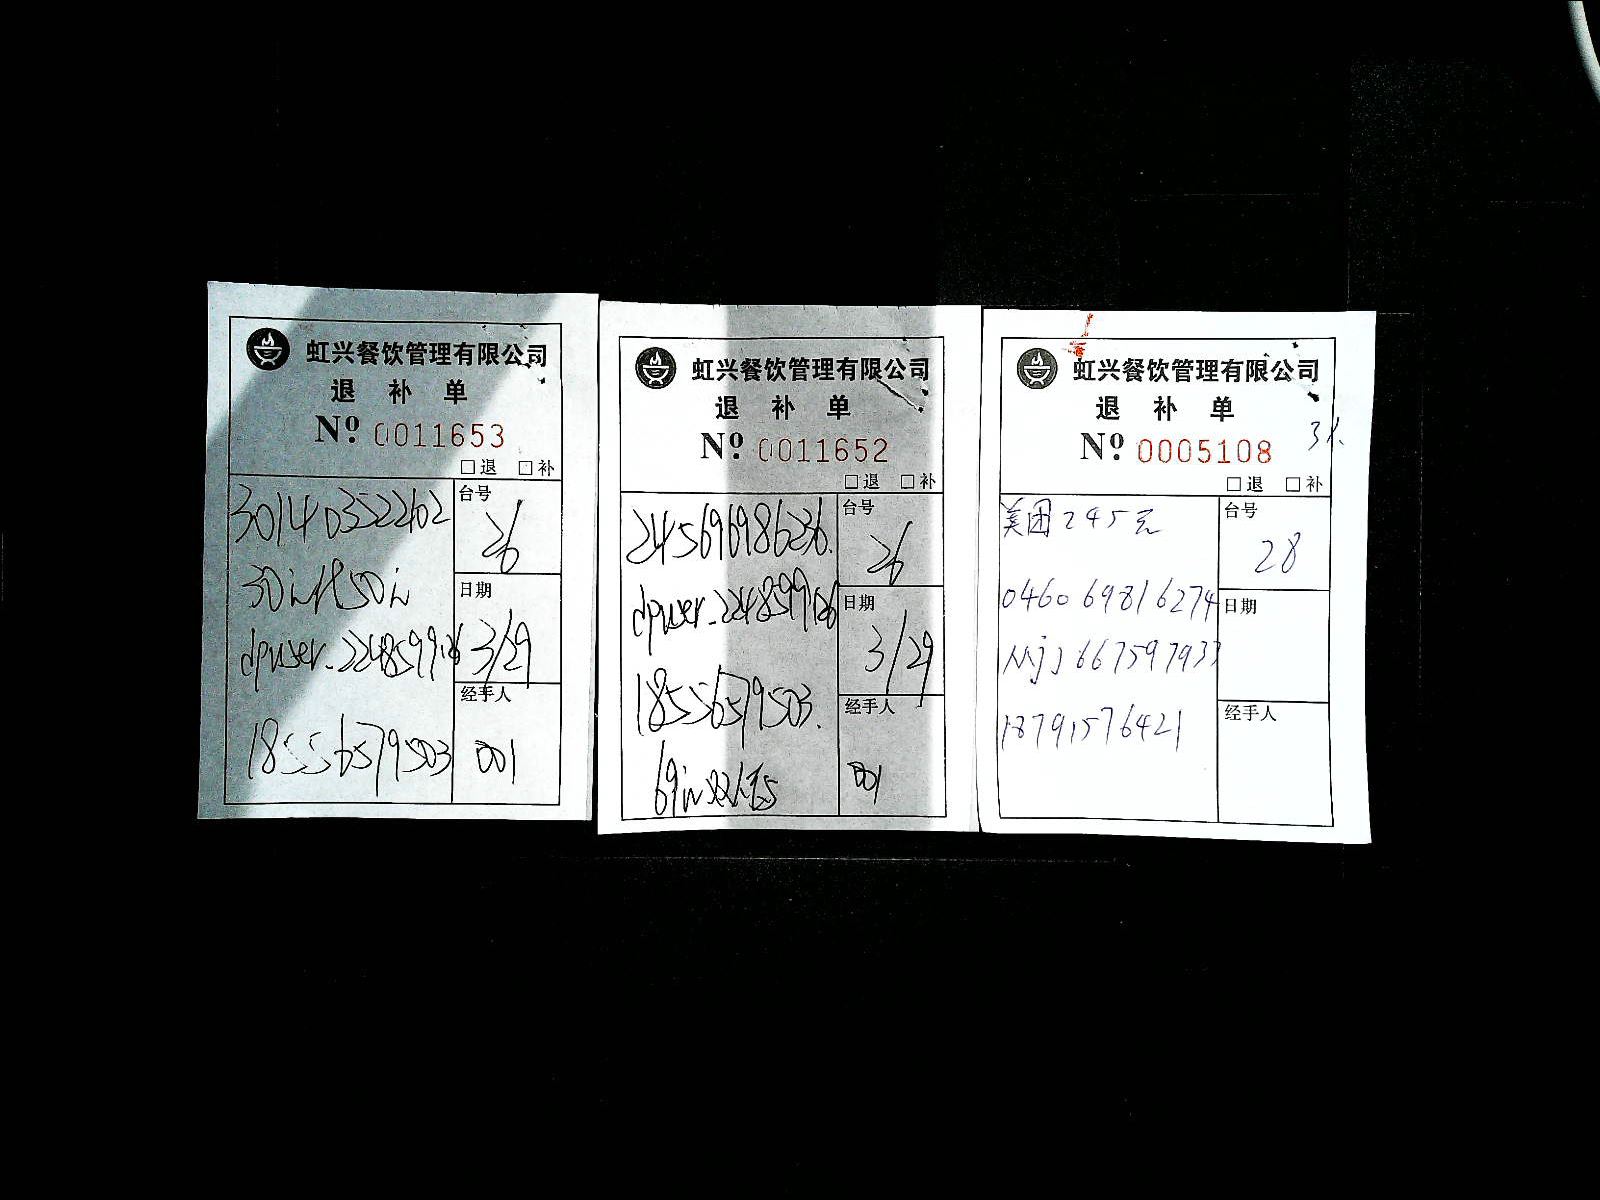 虹兴餐饮管理有限公司
退 补 单
Nº 0011653
□退 □补
301403522402
台号
26
30元代50元
日期
3/29
dpuser_2248599126
经手人
18556579503
001
虹兴餐饮管理有限公司
退 补 单
Nº 0011652
□退 □补
245696986236.
台号
26
dpuser_2248599126
日期
3/29
18556579503.
经手人
69元
001
虹兴餐饮管理有限公司
退 补 单
Nº 0005108
□退 □补
美团245元
台号
28
046069816274
日期
Mjj667597933
经手人
18791576421